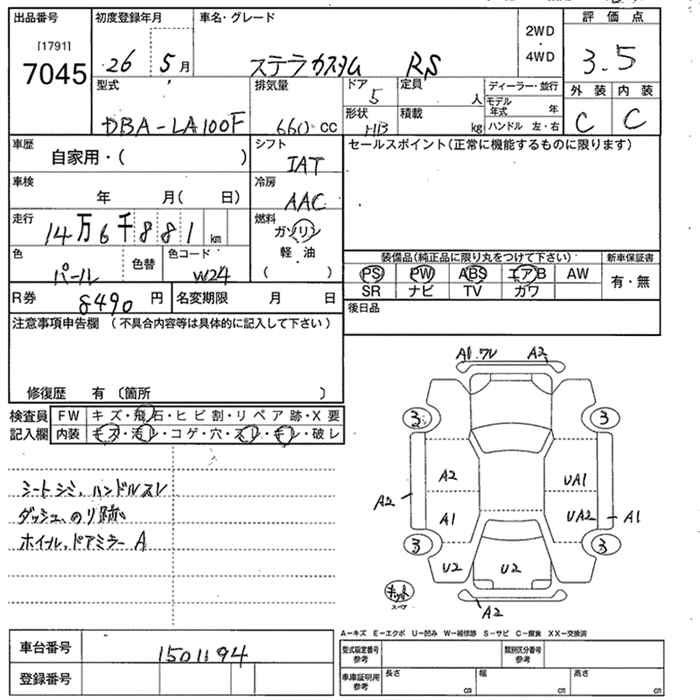 出品番号 初度登録年月 車名・グレード 2WD・4WD 評価点
[1791]
7045 26 5月 ステラカスタム RS 3.5
型式 排気量 ドア 定員 ディーラー・並行 外装 内装
5 人 モデル年式 年
DBA-LA100F 660cc 形状 積載 C C
HB kg ハンドル 左・右
車歴 シフト セールスポイント(正常に機能するものに限ります)
自家用・( ) IAT
車検 冷房
年 月( 日) AAC
走行 燃料
14万6千881km ガソリン
軽・油
( )
色 色替 色コード 装備品(純品に限り丸をつけて下さい) 新車保証書
パール W24 PS PW ABS エアB AW 有・無
SR ナビ TV ガワ
R券 8490円 名変期限 月 日 後日品
注意事項申告欄 (不具合内容等は具体的に記入して下さい)
修復歴 有 (箇所 )
検査員 FW キズ・飛石・ヒビ割・リペア跡・X要
記入欄 内装 キズ・汚レ・コゲ・穴・スレ・キレ・破レ
シートシミ、ハンドルスレ
ダッシュのり跡
ホイル、ドアミラー A
A1.ワレ A2
3 3
A2 UA1
A2
A1 UA2 A1
3 3
U2 U2
キット
スペア
A2
A-キズ E-エクボ U-凹み W-補修跡 S-サビ C-腐食 XX-交換済
車台番号 1501194 型式指定番号 参考 類別区分番号 参考
登録番号 車庫証明用 参考 長さ cm 幅 cm 高さ cm